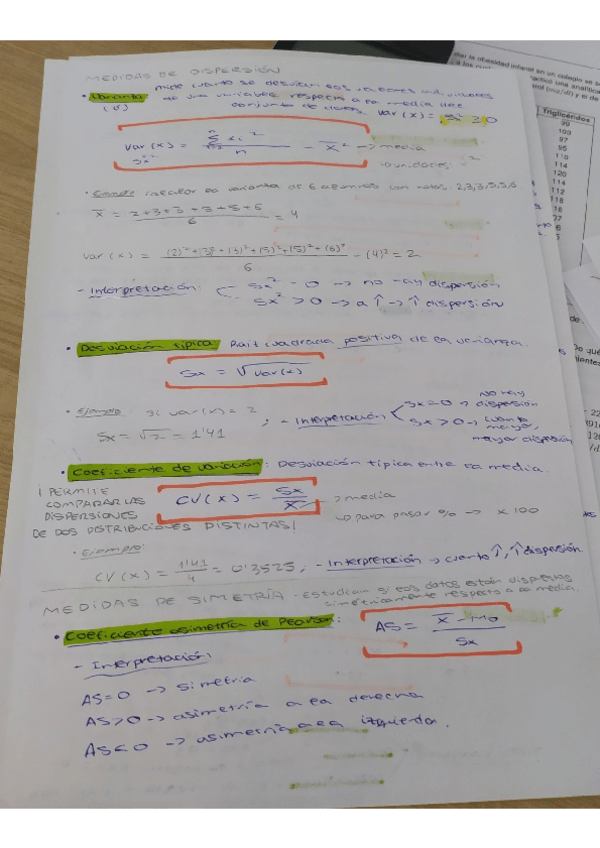 MEDIDAS DE DISPERSIÓN
• Varianza: mide cuanto se desvían los valores individuales
de una variable respecto a la media del
conjunto de datos. Var(x) = Sx² ≥ 0
Var(x) = Σ xi² / n − x̄² → media
Sx²
unidades ²
• Ejemplo: calcular la varianza de 6 alumnos con notas: 2,3,3,5,5,6
x̄ = 2+3+3+5+5+6 / 6 = 4
Var(x) = (2)²+(3)²+(3)²+(5)²+(5)²+(6)² / 6 − (4)² = 2
- Interpretación: Sx² = 0 → no hay dispersión
Sx² > 0 → a ↑ → ↑ dispersión
• Desviación típica: Raíz cuadrada positiva de la varianza.
Sx = √Var(x)
• Ejemplo: si Var(x) = 2
Sx = √2 = 1'41
; - Interpretación
Sx=0 → No hay dispersión
Sx>0 → cuanto mayor, mayor dispersión
• Coeficiente de variación: Desviación típica entre la media.
¡PERMITE
COMPARAR LAS
DISPERSIONES
DE DOS DISTRIBUCIONES DISTINTAS!
CV(x) = Sx / x̄ → media
para pasar % → x 100
• Ejemplo:
CV(x) = 1'41 / 4 = 0'3525; - Interpretación → cuanto ↑, ↑ dispersión.
MEDIDAS DE SIMETRÍA - Estudian si los datos están dispersos
simétricamente respecto a la media.
• Coeficiente asimetría de Pearson:
AS = x̄ − Mo / Sx
- Interpretación:
AS=0 → simetría
AS>0 → asimetría a la derecha
AS<0 → asimetría a la izquierda.
obesidad infantil en un colegio se
Triglicéridos